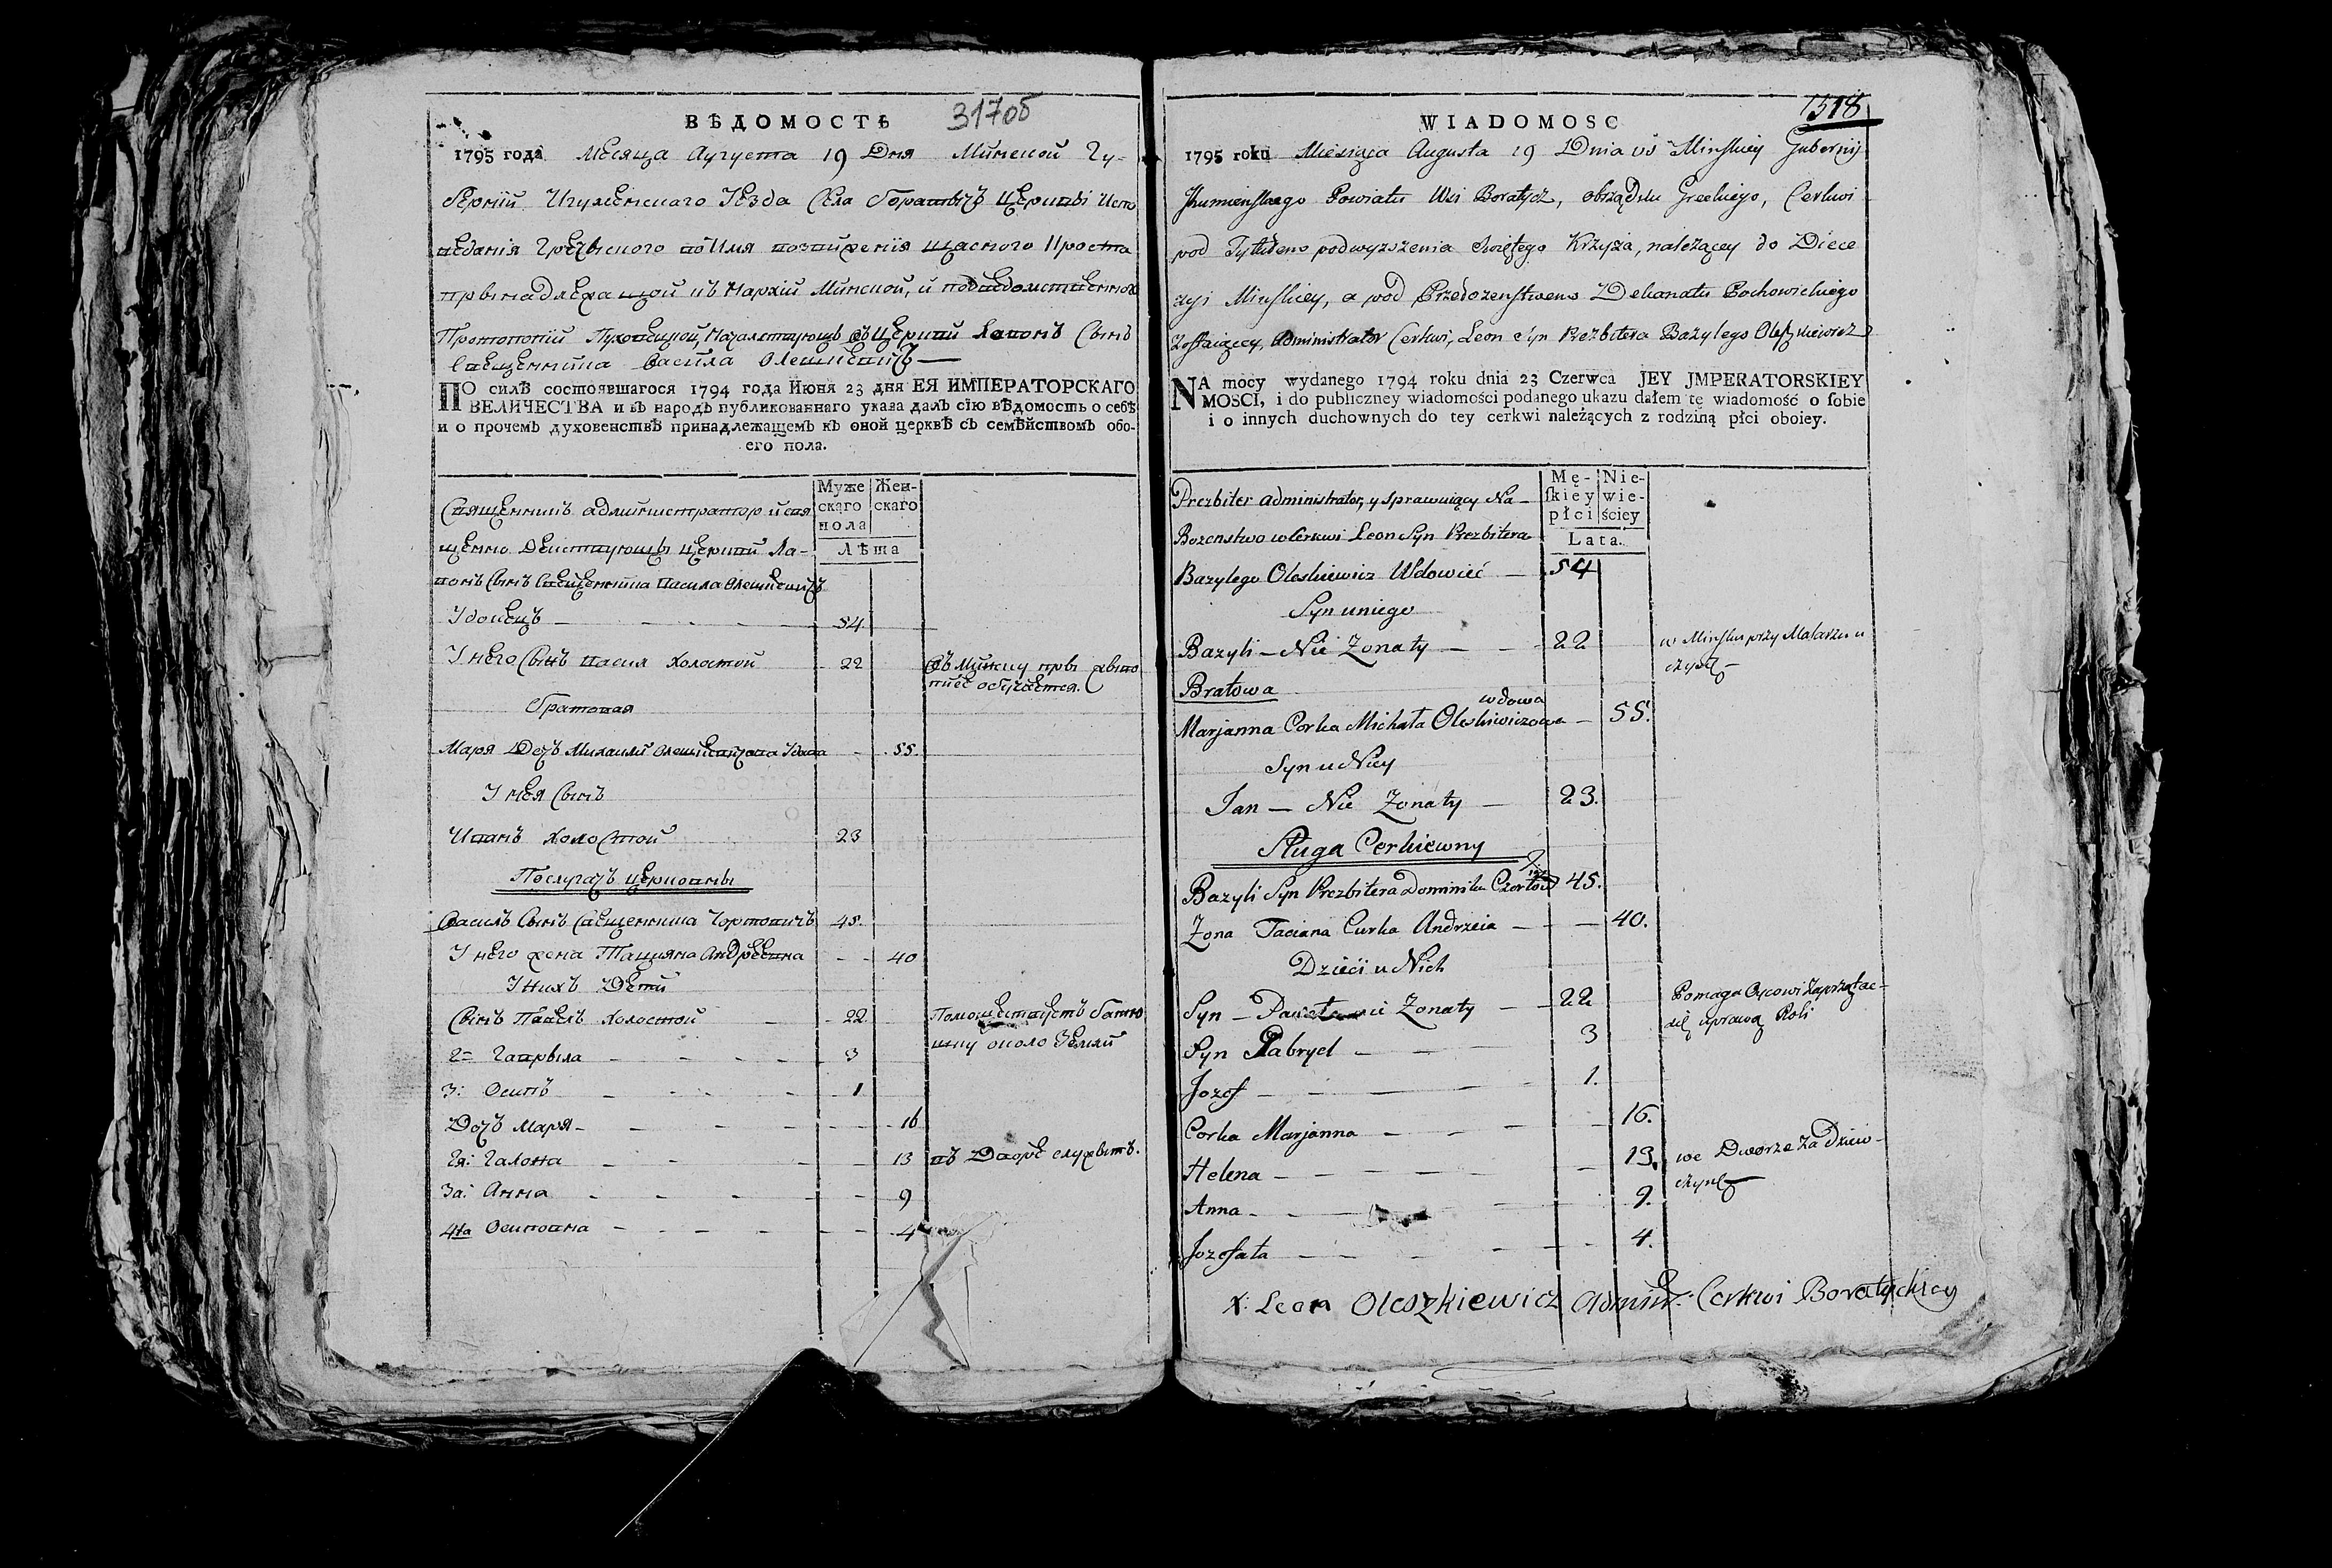 ВѢДОМОСТЬ
317об
1795 года Месяца Аугуста 19 Дня Минской Гу-
берніи Игуменскаго Уезда Села Боратычъ Церкви Испо
веданія Греческого
принадлежащой Минской, и
Протопопіи
Священника Василя Олешкевичъ —
ПО силѣ состоявшагося 1794 года Июня 23 дня ЕЯ ИМПЕРАТОРСКАГО
ВЕЛИЧЕСТВА и въ народъ публикованнаго указа далъ сїю вѣдомость о себѣ
и о прочемъ духовенствѣ принадлежащемъ къ оной церквѣ съ семѣйствомъ обо-
его пола.
Муже Жен-
скаго скаго
пола
Лѣта
Священникъ администратор и свя
щенно Действующы церкви Ла-
вонъ Сынъ Священника Васила Олешкевичъ
Удовецъ — 54
У него Сынъ Васил Холостой 22 въ Минску при живо
писе обучается.
Братовая
Маря Дочъ Михаили Олешкевичова Удова 55.
У нея Сынъ
Иванъ холостой 23
Послугачъ церковны
Василъ Сынъ Священника Чортовичъ 45.
У него жена Татцяна Андреевна 40
У нихъ Дети
Сынъ Павелъ Холостой 22 Помоществуетъ батю
шку около Земли
2= Гаврыла 3
3: Осипъ 1
Дочъ Маря 16
2я: Галона 13 въ Дворе служытъ.
3а: Анна 9
4та Осиповна 4
WIADOMOSC
1318
1795 roku Miesiąca Augusta 19 Dnia w Minskiey Gubernij
Jhumienskiego Powiatu Wsi Boratycz, obrządku Greckiego, Cerkwi
pod Tytułem podwyzszenia Swiętego Krzyża, należącey do Diece
zyi Minskiey, a pod Przełożenstwem Dekanatu Pochowickiego
Zostaiącey, Administrator Cerkwi, Leon Syn Prezbitera Bazylego Oleszkiewicz
NA mocy wydanego 1794 roku dnia 23 Czerwca JEY JMPERATORSKIEY
MOSCI, i do publiczney wiadomości podanego ukazu dałem tę wiadomość o sobie
i o innych duchownych do tey cerkwi należących z rodziną płci oboiey.
Mę- Nie-
skiey wie-
płci ściey
Lata.
Prezbiter administrator, y sprawuiący Na-
Bozenstwo w Cerkwi Leon Syn Prezbitera
Bazylego Oleskiewicz Wdowieć — 54
Syn u niego
Bazyli — Nie Zonaty — 22 w Minsku przy Malarzu u
czysię —
Bratowa
wdowa
Marjanna Corka Michała Oleskiewiczowa — 55.
Syn u Niey
Jan — Nie Zonaty — 23.
Sługa Cerkiewny
Bazyli Syn Prezbitera Dominika 45.
Zona Taciana Curka Andrzeia — 40.
Dzieći u Nich
Syn — Paweł nie Zonaty — 22 Pomaga Oycowi Zaprzątac-
się uprawą Roli
Syn Gabryel — 3
Jozef — 1.
Corka Marjanna — 16.
Helena — 13. we Dworze Za Dziew-
czynę —
Anna — 9.
Jozefata — 4.
X: Leon Oleszkiewicz Admin: Cerkwi Boratyckiey